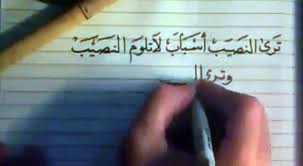 تَرىٰ النَصيبْ أسْبَابَ لَاتلومَ النصَيْبْ
وترىٰ ال